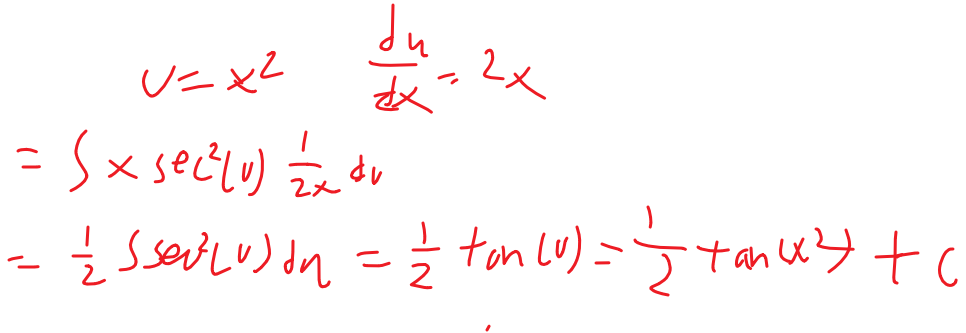 u = x² du/dx = 2x
= ∫ x sec²(u) 1/2x du
= 1/2 ∫ sec²(u) du = 1/2 tan(u) = 1/2 tan(x²) + c